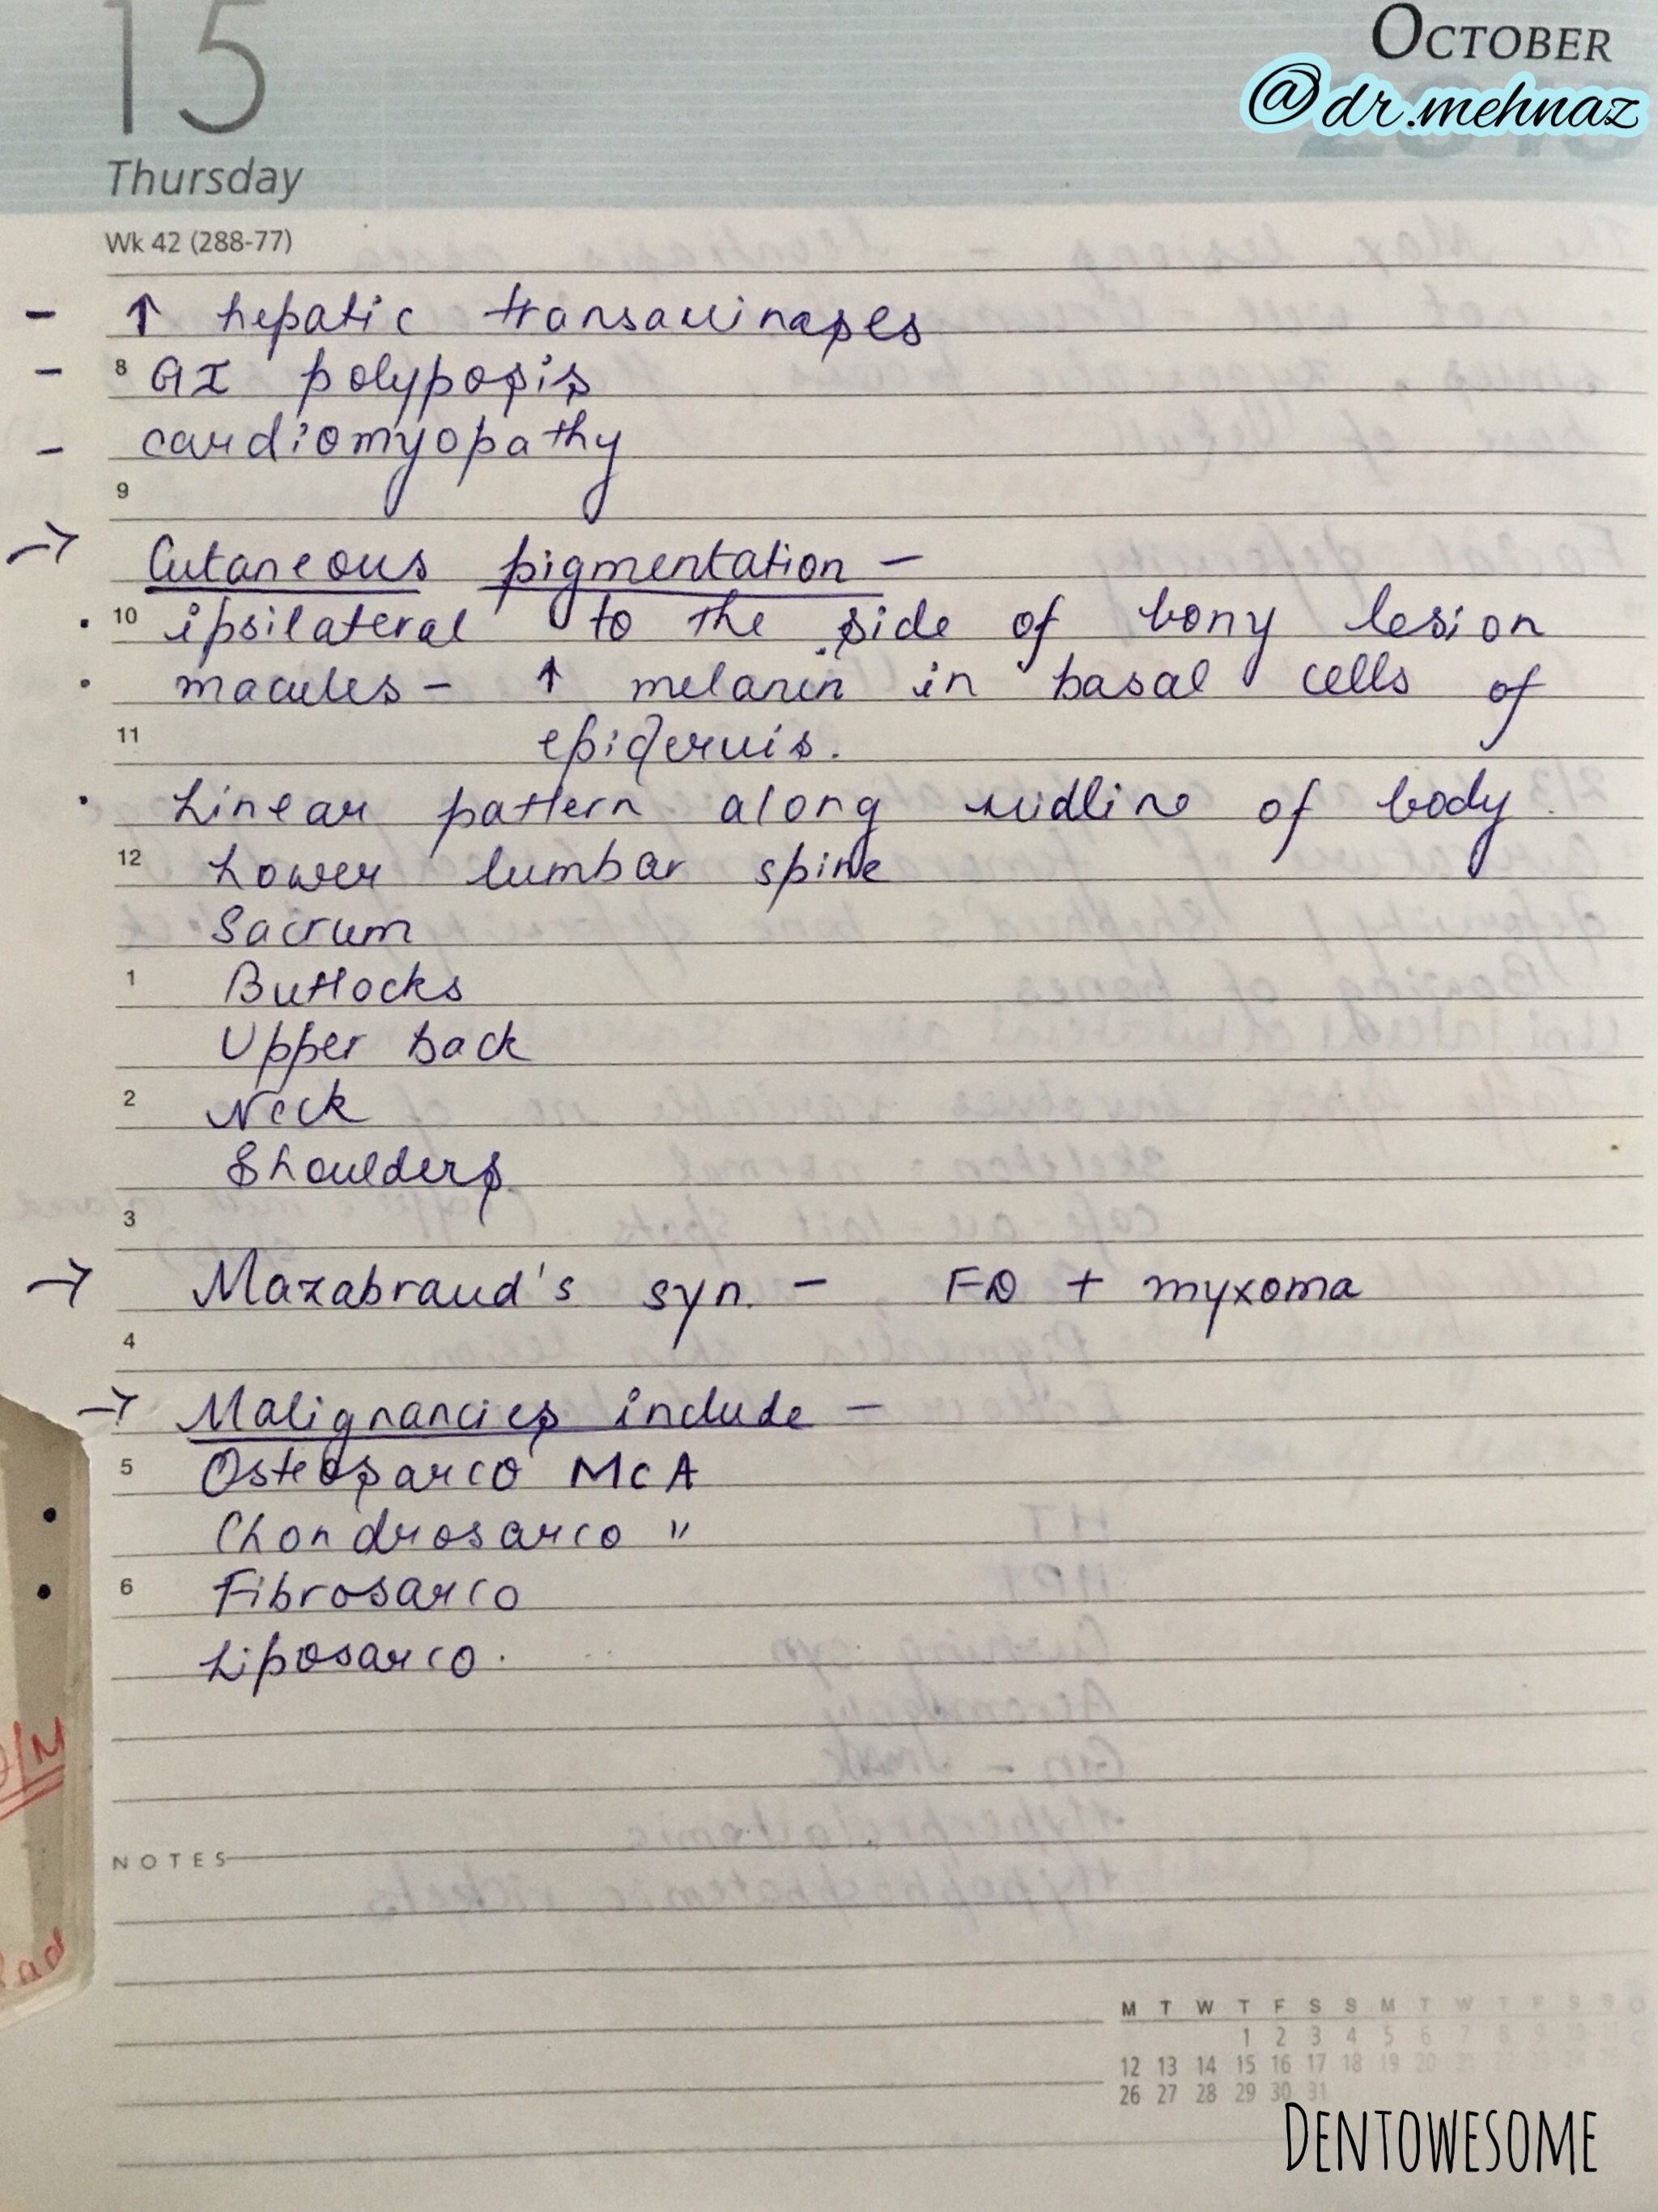 15
OCTOBER
@dr.mehnaz
2015
Thursday
Wk 42 (288-77)
- ↑ hepatic transaminases
- 8 GI polyposis
- cardiomyopathy
9
→ Cutaneous pigmentation -
• 10 ipsilateral to the side of bony lesion
• macules - ↑ melanin in basal cells of
11 epidermis.
• Linear pattern along midline of body.
12 Lower lumbar spine
Sacrum
1 Buttocks
Upper back
2 Neck
Shoulders
3
→ Mazabraud's syn. - FD + myxoma
4
→ Malignancies include -
5 Osteosarco McA
Chondrosarco "
6 Fibrosarco
Liposarco.
NOTES
M T W T F S S M T W T F S S
1 2 3 4 5 6 7 8 9 10 11
12 13 14 15 16 17 18 19 20 21 22 23 24 25
26 27 28 29 30 31
DENTOWESOME